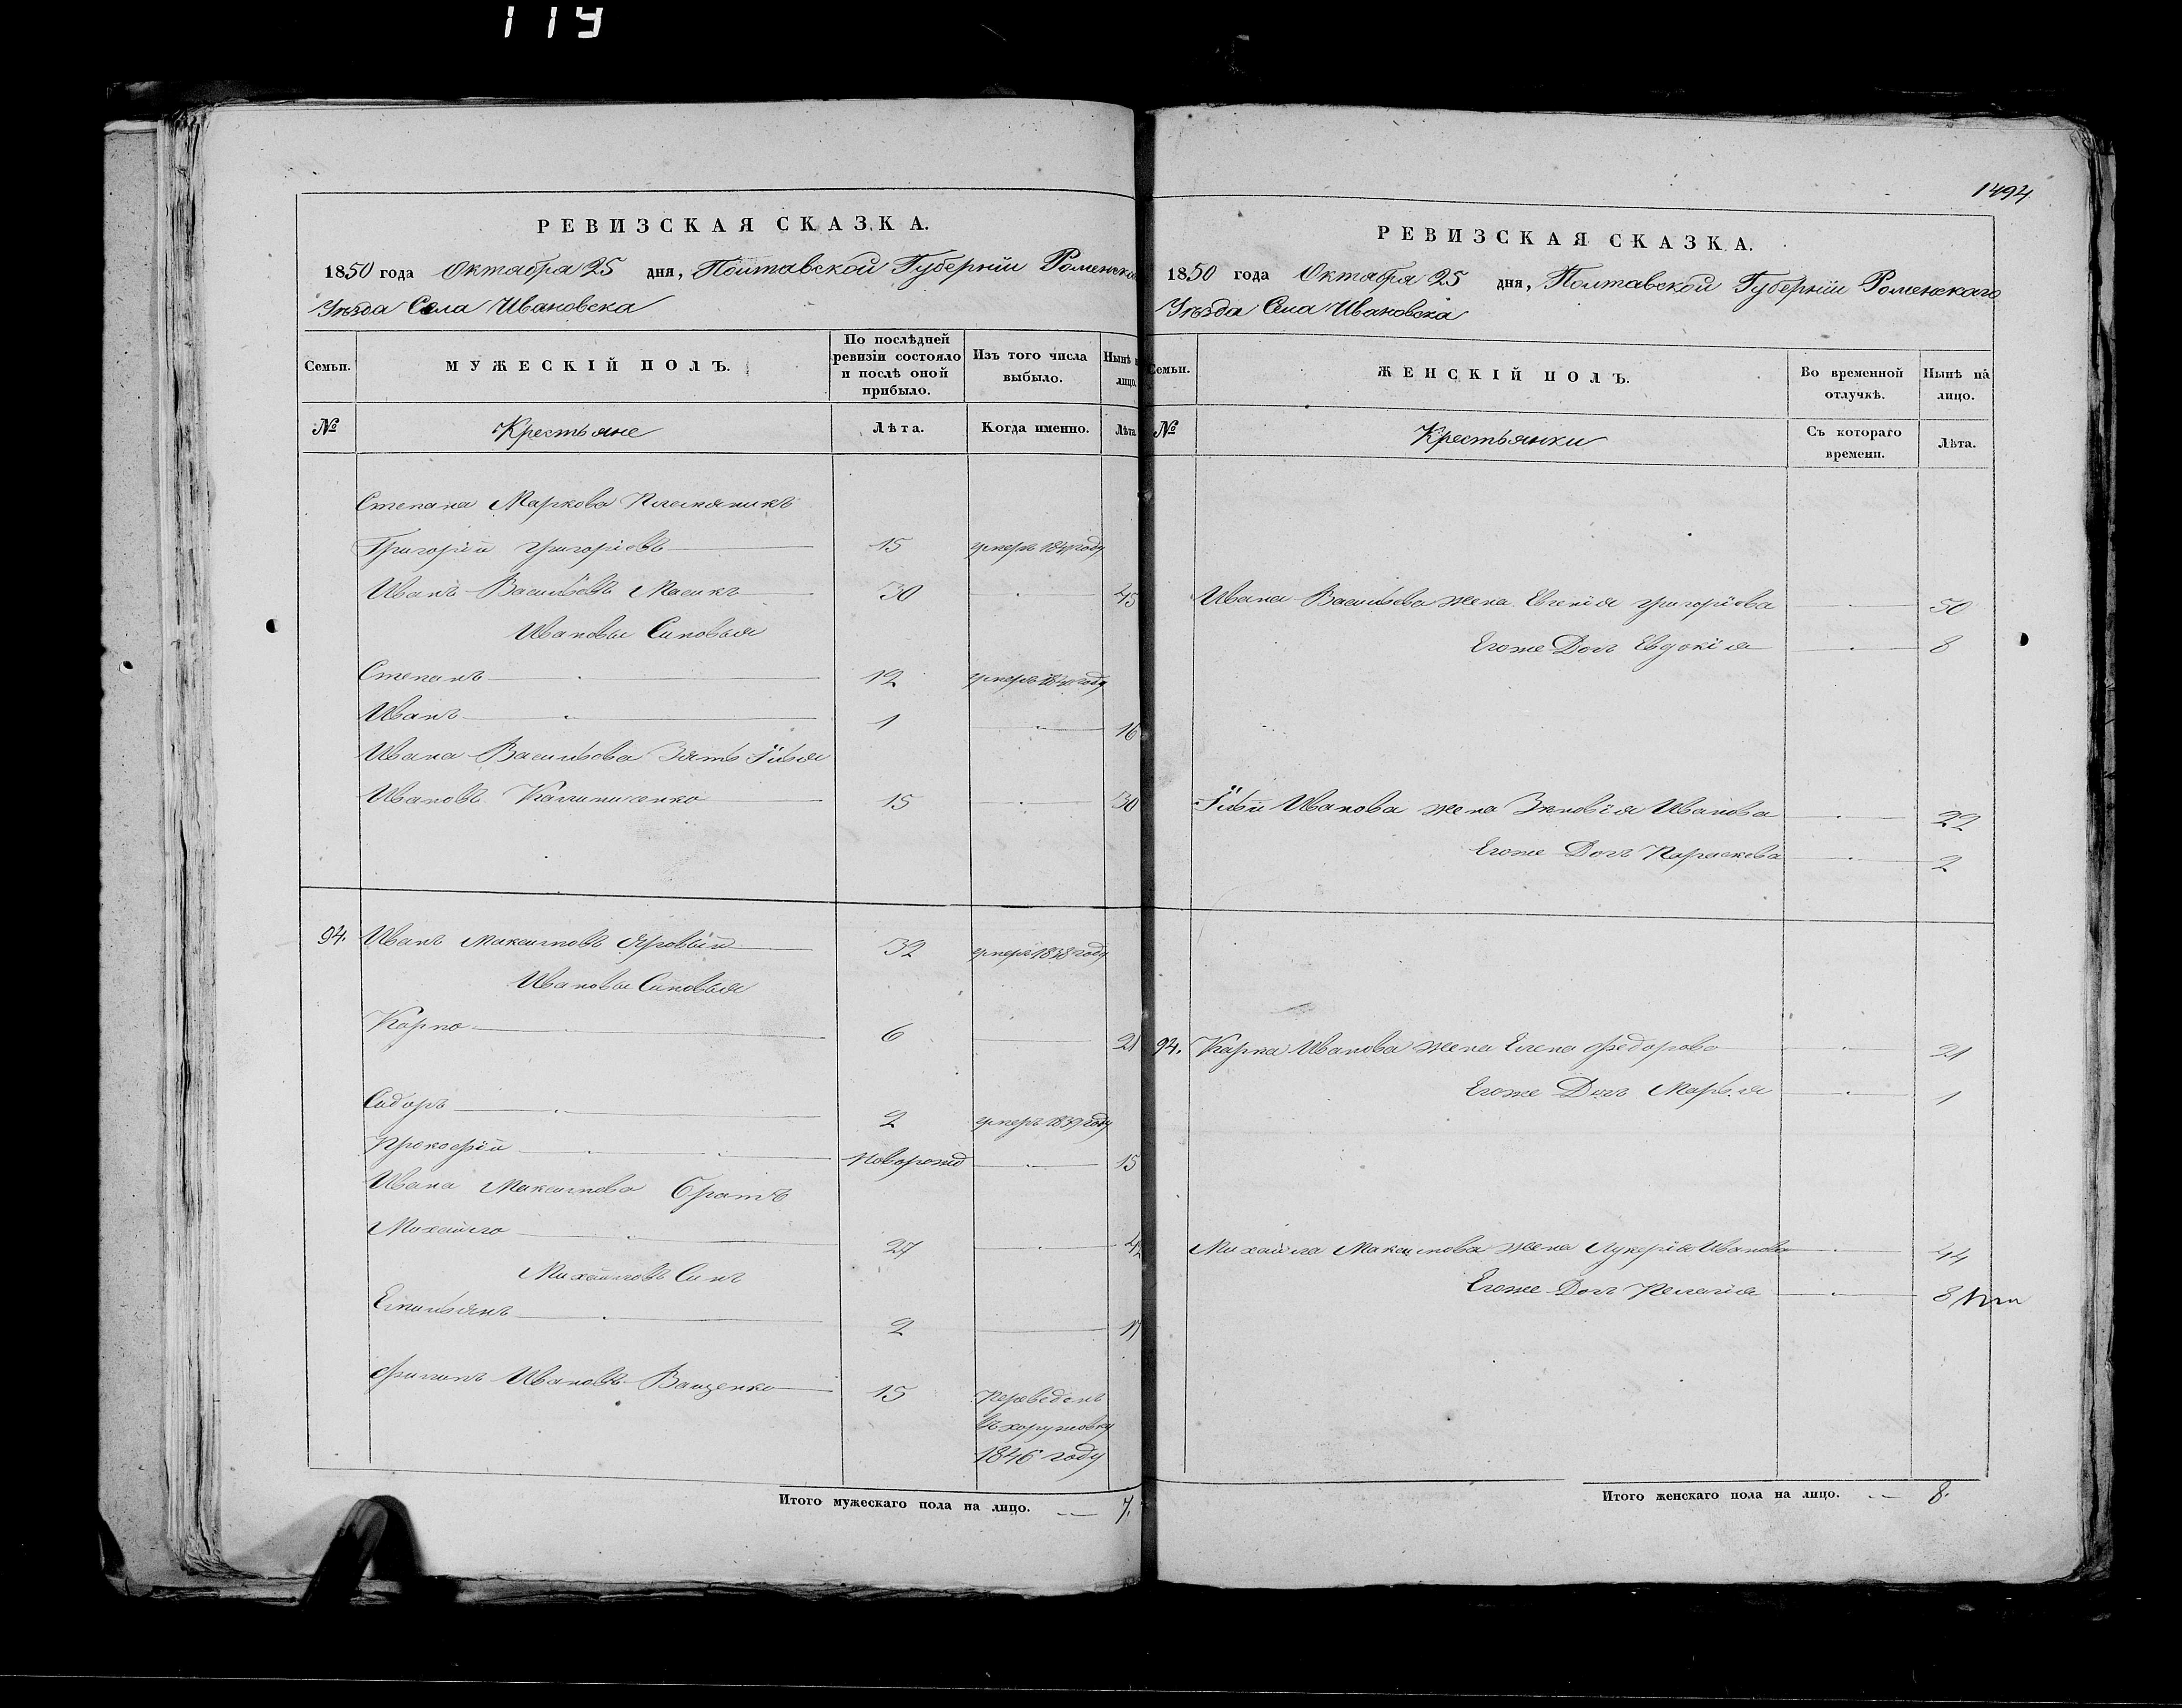 119
РЕВИЗСКАЯ СКАЗКА.
1850 года Октября 25 дня, Полтавской Губернїи Роменска
Уѣзда Села Ивановска
Семьи. МУЖЕСКІЙ ПОЛЪ. По послѣдней ревизіи состояло и послѣ оной прибыло. Изъ того числа выбыло. Нынѣ лицо.
№ Крестьяне Лѣта. Когда именно. Лѣта
Степана Маркова Племяникъ
Григорїй Григорїевъ 15 умеръ году
Иванъ Васильевъ Масикъ 30 45
Ивановы Сыновья
Степанъ 12 умеръ году
Иванъ 1 16
Ивана Васильева Зять Илья
Ивановъ Калиниченко 15 30
94. Иванъ Максимовъ Яровый 32 умеръ 1838 году
Ивановы Сыновья
Карпо 6 21
Сидоръ 2 умеръ 1839 году
Прокофїй Новорожд 15
Ивана Максимова Братъ
Михайло 27 42
Михайловъ Сынъ
Емильянъ 2 17
Филипъ Ивановъ Ващенко 15 Переведенъ
въ хоружовку
1846 году
Итого мужескаго пола на лицо. 7.
1494
РЕВИЗСКАЯ СКАЗКА.
1850 года Октября 25 дня, Полтавской Губернїи Роменскаго
Уѣзда Села Ивановска
Семьи. ЖЕНСКІЙ ПОЛЪ. Во временной отлучкѣ. Нынѣ на лицо.
№ Крестьянки Съ котораго времени. Лѣта.
Ивана Васильева жена Евгенїя Григорїева 50
Егоже Дочь Евдокїя 8
Ильи Иванова жена Зѣновїя Иванова 22
Егоже Дочь Параскева 2
94. Карпа Иванова жена Елена Федорова 21
Егоже Дочь Марья 1
Михайла Максимова жена Лукерїя Иванова 44
Егоже Дочь Пелагїя 8
Итого женскаго пола на лицо. 8.